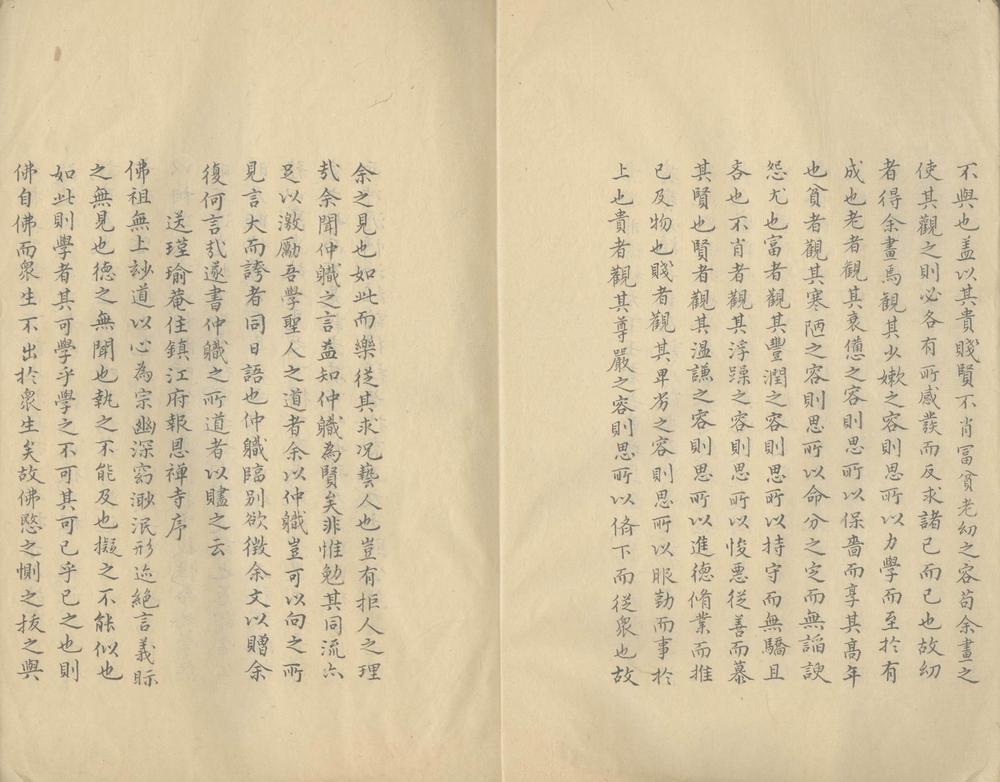 不與也盖以其貴賤賢不肖冨貧老幼之容苟余畫之
使其觀之則必各有所感發而反求諸己而已也故幼
者得余畫焉觀其少嫩之容則思所以力學而至於有
成也老者觀其衰憊之容則思所以保嗇而享其高年
也貧者觀其寒陋之容則思所以命分之定而無謟諛
怨尤也富者觀其豐潤之容則思所以持守而無驕且
吝也不肖者觀其浮躁之容則思所以悛悪從善而慕
其賢也賢者觀其温謙之容則思所以進德脩業而推
已及物也賤者觀其卑劣之容則思所以服勤而事於
上也貴者觀其尊嚴之容則思所以脩下而從衆也故
余之見也如此而樂從其求况藝人也豈有拒人之理
㢤余聞仲軄之言益知仲軄為賢矣非惟勉其同流亦
足以激勵吾學聖人之道者余以仲軄豈可以向之所
見言大而誇者同日語也仲軄臨别欲徵余文以贈余
復何言㢤遂書仲軄之所道者以贐之云
送瑾瑜菴住鎮江府報恩禅寺序
佛祖無上玅道以心為宗幽深窈渺泯形迹絶言義眎
之無見也德之無聞也執之不能及也擬之不能似也
如此則學者其可學乎學之不可其可已乎已之也則
佛自佛而衆生不出於衆生矣故佛愍之惻之抜之與